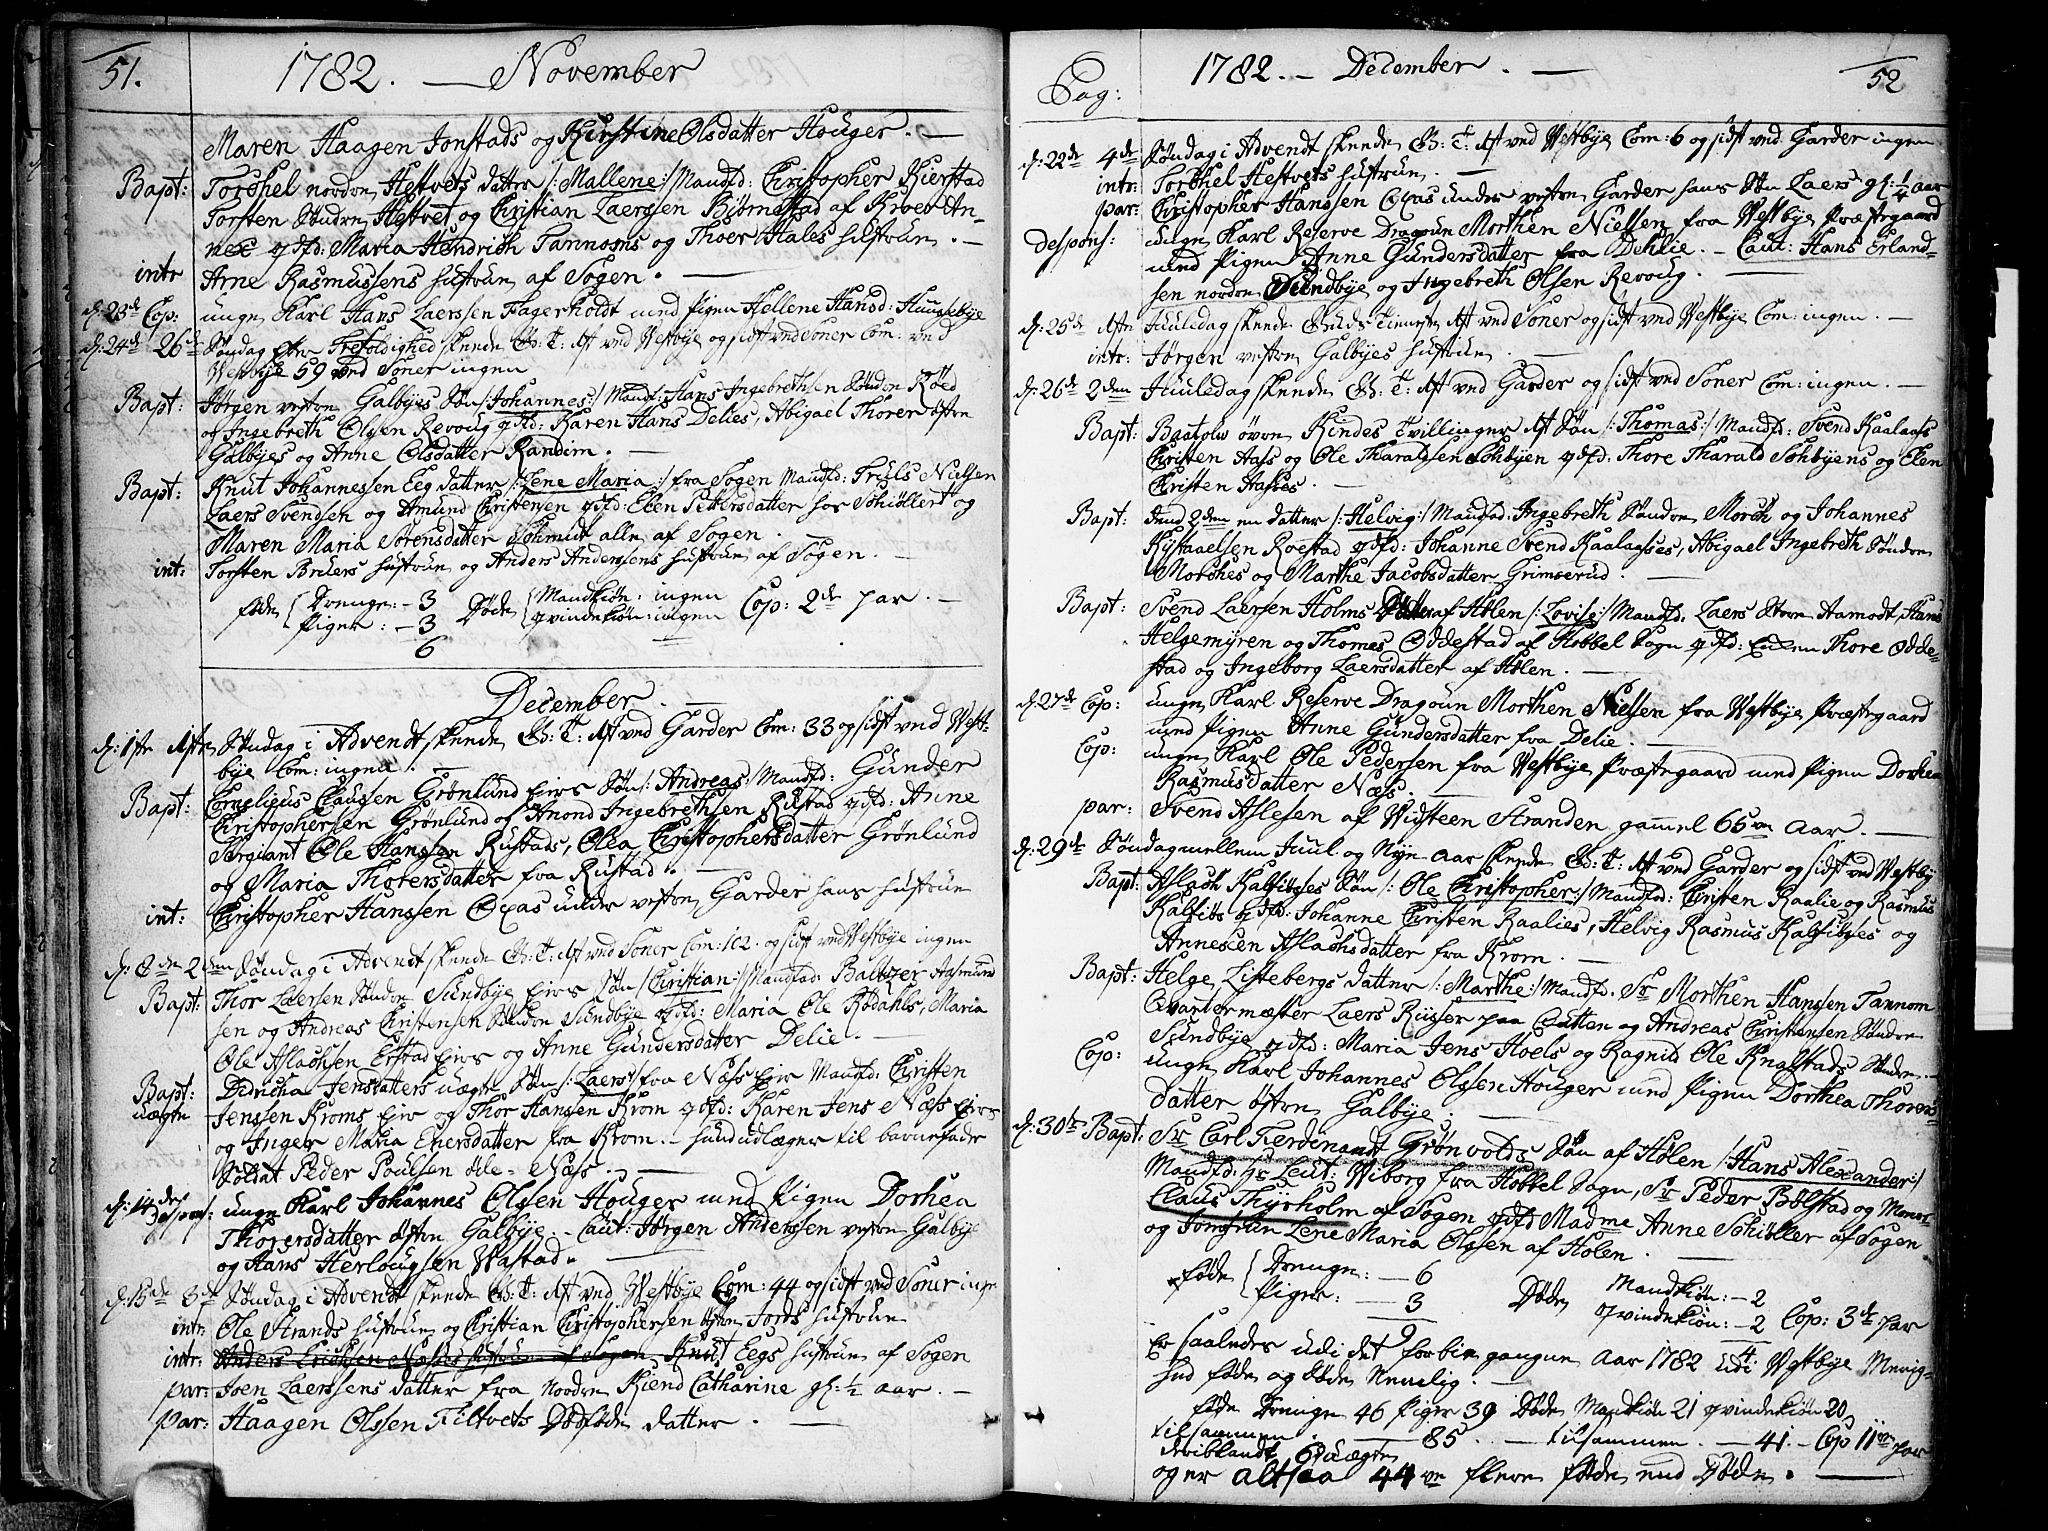 51.
1782. — November
Maren Haagen Jonstads og Kirstine Olsdatter Houger. —
Bapt: Torchel nordre Hestvets datter /: Mallene :/ Mandfd: Christopher Kierstad
Torsten Søndre Hestvet og Christian Laerssen Biørnestad af Kroer An-
nex qdfd: Maria Hendrich Tannosns og Thoer Hales hustrue. —
intr Arne Rasmussens hustrue af Sogen. —
d: 23de Cop: unge Karl Hans Laerssen Fagerholdt med Pigen Hellene Hansd: Huugsebye
d: 24de 26de Søndag efter Trefoldighed skeede G: T: Af ved Westbye og sidst ved Soner Com: ved
Westbye 59 ved Soner ingen
Bapt: Jørgen vestre Galbyes Søn /: Johannes :/ Mandf: Hans Ingebrethsen Søndre Røed
og Ingebreth Olsen Revoug qdfd: Karen Hans Delies, Abigael Thorer østre
Galbyes og Anne Olsdatter Randim. —
Bapt: Knut Johannessen Eeg datter /: Lene Maria :/ fra Sogen Mandfd: Truls Nielsen
Laers Svendsen og Amund Christensen qdfd: Elen Pettersdatter hos Schiøllert og
Maren Maria Sørensdatter Schmidt alle af Sogen. —
int: Torsten Brukers hustrue og Anders Anderssens hustrue af Sogen. —
føde Drenge: — 3 Døde Mandkiøn: ingen Cop: 2de par. —
Piger: — 3 qvindekiøn: ingen
6
December. —
d: 1ste 1ste Søndag i Advendt skeede G: T: Af ved Garder Com: 33 og sidst ved West-
bye Com: ingen. —
Bapt: Cornelius Claussen Grønlund Eiers Søn /: Andreas :/ Mandfd: Gunder
Christophersen Grønlund og Amond Ingebrethsen Rustad qdfd: Anne
Sergiant Ole Hanssen Rustads, Olea Christophersdatter Grønlund
og Maria Thorersdatter fra Rustad. —
int: Christopher Hanssen Oxas under vestre Garder hans hustrue
d: 8de 2den Søndag i Advendt skeede G: T: Af ved Soner Com: 102. og sidst ved Westbye ingen
Bapt: Thor Laersen Søndre Sundbye Eiers Søn /: Christian :/ Mandfd: Baltzer Aasmund
sen og Andreas Christensen Søndre Sundbye qdfd: Maria Ole Kodahls, Maria
Ole Aslachsen Erstad Eiers og Anne Gundersdatter Delie. —
Bapt: Didricha Jensdatters uægte Søn /: Laers :/ fra Næss Eier Mandfd: Christen
uægte Jenssen Kroms Eier og Thor Hanssen Krom qdfd: Karen Jens Næss Eiers
og Inger Maria Enersdatter fra Krom. — hun udlægger til barnefader
Soldat Peder Poulsen øde-Næss. —
d: 14de Despons: unge Karl Johannes Olssen Houger med Pigen Dorhea
Thorersdatter østre Galbye. Caut: Jørgen Anderssen vestre Galbye
og Hans Herlougsen Wastad. —
d: 15de 3de Søndag i Advendt skeede G: T: Af ved Westbye Com: 44 og sidst ved Soner ingen
intr: Ole Strands hustrue og Christian Christophersen østre Jords hustrue
intr: Anders Erichsen Næsses hustrue af Sogen Knut Eegs hustrue af Sogen
par: Joen Laerssens datter fra Nordre Kiend Catharine gl: 1/2 aar. —
par: Haagen Olssen Filtvets Dødføde datter. —
Pag: 1782. — December. — 52
d: 22de 4de Søndag i Advendt skeede G: T: Af ved Westbye Com: 6 og sidst ved Garder ingen
intr: Torchel Hestvets hustrue. —
par: Christopher Hanssen Oxas under vestre Garder hans Søn Laers gl: 1/4 aar
Despons: unge Karl Reserve Dragoun Morthen Nielsen fra Westbye Præstegaard
med Pigen Anne Gundersdatter fra Dehlie. — Caut: Hans Erland-
sen nordre Sundbye og Ingebreth Olsen Revoug. —
d: 25de 1ste Juuledag skeede Guds Tieneste Af ved Soner og sidst ved Westbye Com: ingen. —
intr: Jørgen vestre Galbyes hustrue. —
d: 26de 2den Juuledag skeede G: T: Af ved Garder og sidst ved Soner Com: ingen. —
Bapt: Baatolv øvre Kindes Tvillinger Af Søn /: Thomas :/ Mandfd: Svend Kaalaas
Christen Aass og Ole Tharalssen Sohbyen qdfd: Thore Tharald Sohbyens og Elen
Christen Aasses. —
Bapt: dend 2den en datter /: Helvig :/ Mandfd: Ingebreth Søndre Morch og Johannes
Kistaelsen Roestad qdfd: Johanne Svend Kaalaasses, Abigael Ingebreth Søndre
Morches og Marthe Jacobsdatter Grimserud. —
Bapt: Svend Laersen Holms Datter af Hølen /: Lovise :/ Mandfd. Laers Store Aamodt, Hans
Helgemyren og Thomes Oddestad af Hobbel Sogn qdfd: Thore Odde-
stad og Ingeborg Laersdatter af Hølen. —
d: 27de Cop: unge Karl Reserve Dragoun Morthen Nielsen fra Westbye Præstegaard
med Pigen Anne Gundersdatter fra Delie. —
Cop: unge Karl Ole Pedersen fra Westbye Præstegaard med Pigen Dorhea
Rasmusdatter Næss. —
par: Svend Aslesen af Widsteen Stranden gammel 65 aar. —
d: 29de Søndag mellem Juul og Nye-aar skeede G: T: Af ved Garder og sidst ved Westby
Bapt: Aslach Kalfiøsses Søn /: Ole Christopher :/ Mandfd: Christen Raalie og Rasmus
Kalfiøs qdfd: Johanne Christen Raalies, Helvig Rasmus Kalfiøses og
Annescen Aslachsdatter fra Krom. —
Bapt: Helge Listebergs datter /: Marthe :/ Mandfd. Sr Morthen Hanssen Tannom
Qvartermæster Laers Russer paa Qutten og Andreas Christensen Søndre
Sundbye qdfd: Maria Jens Hoels og Ragnild Ole Knalstads Søndre. —
Cop: unge Karl Johannes Olssen Houger med Pigen Dorthea Thorers
datter østre Galbye. —
d: 30te Bapt: Sr Carl Ferdinandt Grønvolds Søn af Hølen /: Hans Alexander :/
Mandfd: Sr Leut: Wiborg fra Hobbel Sogn, Sr Peder Bølstad og Monsr
Claus Thyrholm af Sogen qdfd Madme Anne Schiøller af Sogen
og Jomfrue Lene Maria Olssen af Hølen. —
føde Drenge: — 6 Døde Mandkiøn: — 2
Piger: — 3 qvindekiøn: — 2 Cop: 3de par
9 4
Er saaledes udi det forbie gangne Aar 1782 udi Westbye Menig-
hed føde og døde Nemlig. —
føde Drenge 46 Piger 39 Døde Mandkiøn 21 qvindekiøn 20
tilsammen — 85. — tilsammen. — 41. — Cop 11 par
deriblandt 6 uægte
og er altsaa 44 flere føde end Døde. —